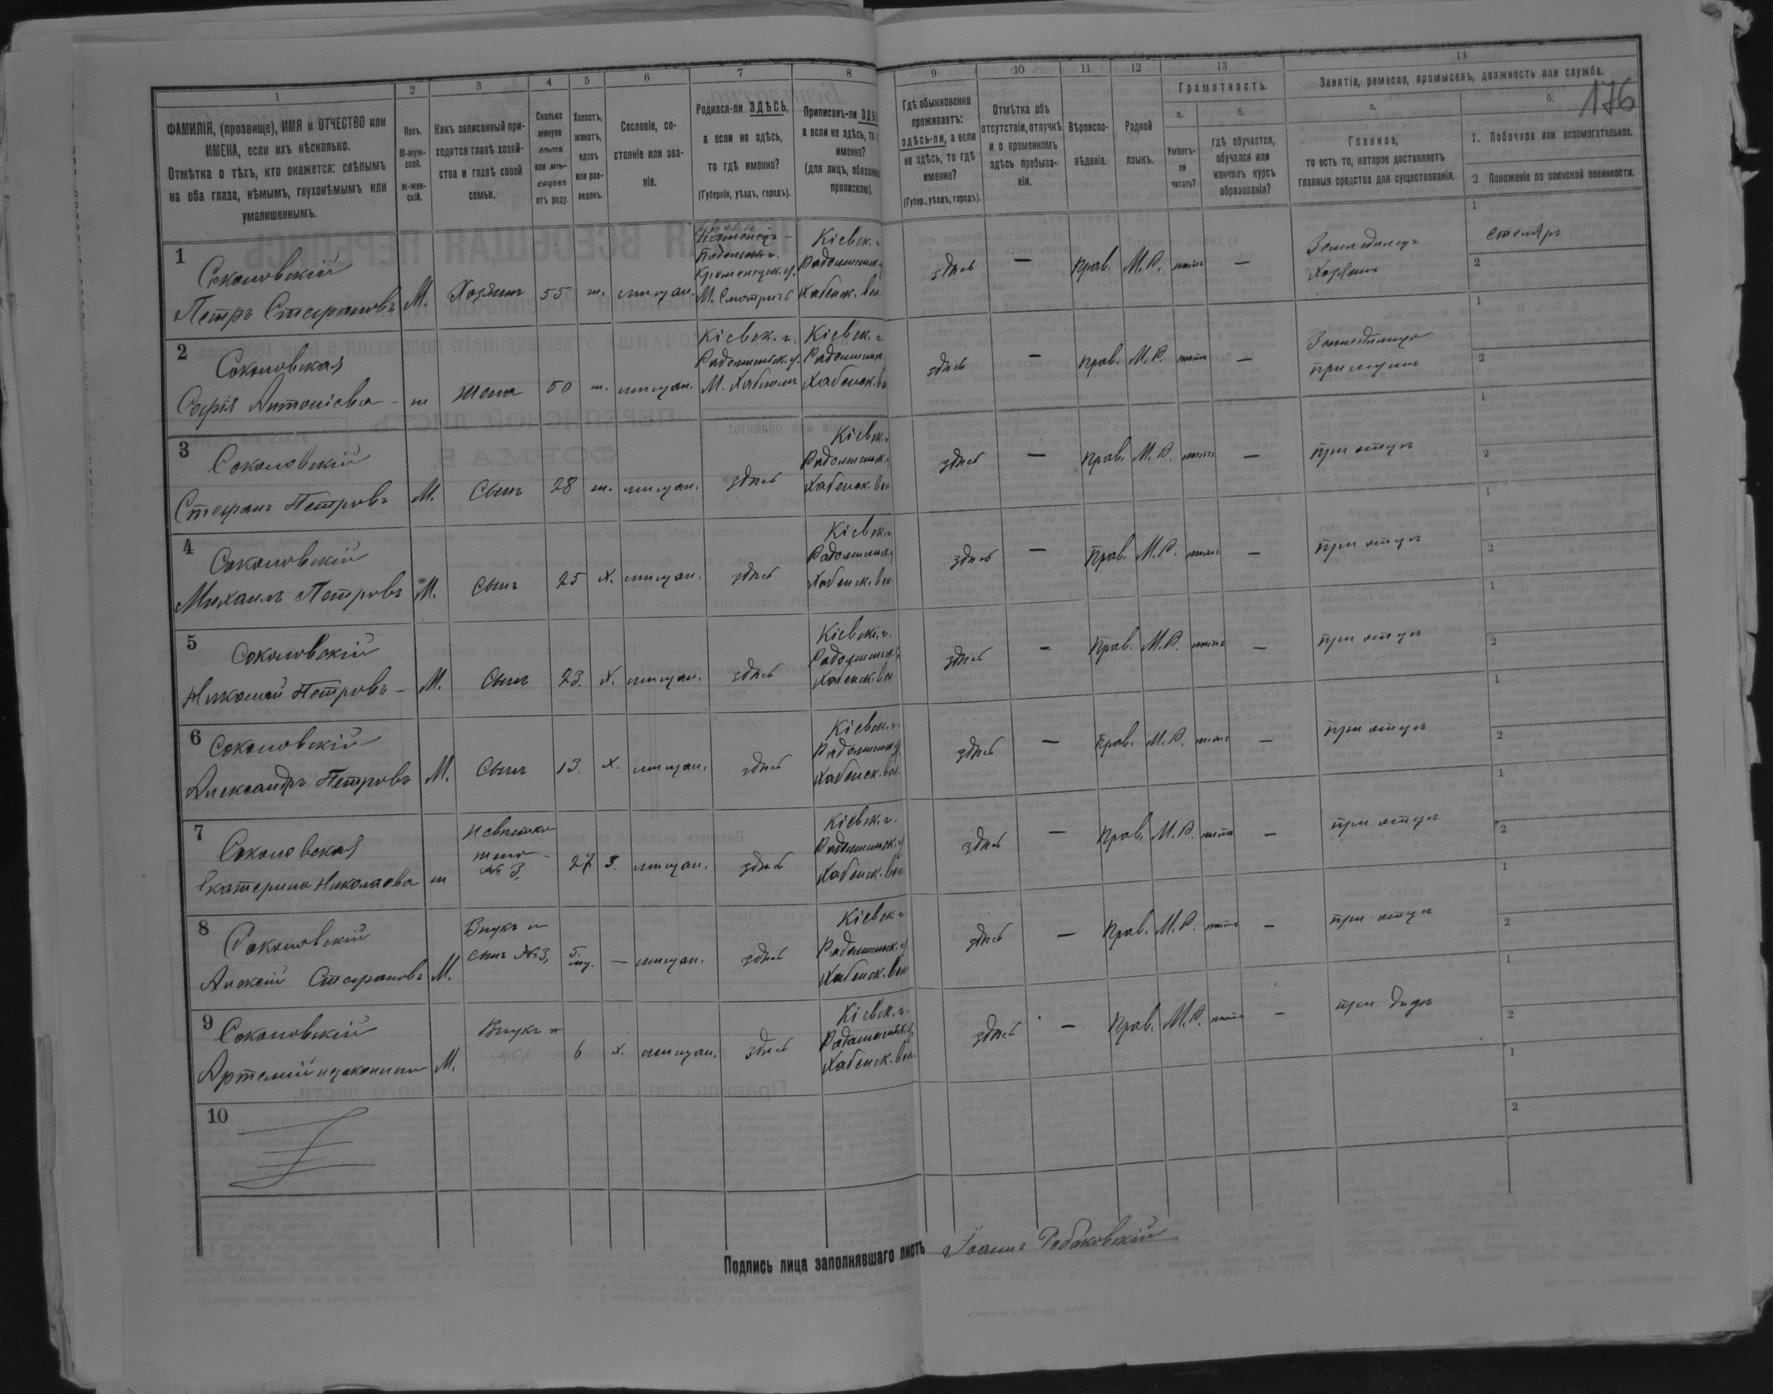 176
1 2 3 4 5 6 7 8 9 10 11 12 13 14
ФАМИЛІЯ, (прозвище), ИМЯ и ОТЧЕСТВО или
ИМЕНА, если ихъ нѣсколько.
Отмѣтка о тѣхъ, кто окажется: слѣпымъ
на оба глаза, нѣмымъ, глухонѣмымъ или
умалишеннымъ.
Полъ.
М-муж-
ской.
ж-жен-
скій.
Какъ записанный при-
ходится главѣ хозяй-
ства и главѣ своей
семьи.
Сколько
минуло
лѣтъ
или мѣ-
сяцевъ
отъ роду.
Холостъ,
женатъ,
вдовъ
или раз-
веденъ.
Сословіе, со-
стояніе или зва-
ніе.
Родился-ли ЗДѢСЬ,
а если не здѣсь,
то гдѣ именно?
(Губернія, уѣздъ, городъ).
Приписанъ-ли ЗДѢ
а если не здѣсь, то
именно?
(для лицъ, обязанны
припискою).
Гдѣ обыкновенно
проживаетъ:
здѣсь-ли, а если
не здѣсь, то гдѣ
именно?
(Губер., уѣздъ, городъ).
Отмѣтка объ
отсутствіи, отлучкѣ
и о временномъ
здѣсь пребыва-
ніи.
Вѣроиспо-
вѣданіе.
Родной
языкъ.
Грамотность.
а.
Умѣетъ-
ли
читать?
б.
гдѣ обучается,
обучался или
кончилъ курсъ
образованія?
Занятіе, ремесло, промыселъ, должность или служба.
а.
Главное,
то есть то, которое доставляетъ
главныя средства для существованія.
б.
1. Побочное или вспомогательное.
2 Положеніе по воинской повинности.
1 Соколовскій
Петръ Стефановъ М. Хозяинъ 55 ж. мѣщан.
М. Смотричъ
Кіевск. г.
Радомысльск. у.
Хабенск. вол.
здѣсь — Прав. М.Р. нѣтъ —
Земледѣлецъ
Хозяинъ
1 столяръ
2
2 Соколовская
Софія Антоніева - ж жена 50 ж. мѣщан.
Кіевск. г.
Радомысльск. у.
М. Хабное
Кіевск. г.
Радомысльск.
Хабенск. вол
здѣсь — Прав. М.Р. нѣтъ —
при мужѣ
1
2
3 Соколовскій
Стефанъ Петровъ М. Сынъ 28 ж. мѣщан. здѣсь
Кіевск. г.
Радомысльск. у.
Хабенск. вол
здѣсь — Прав. М.Р. нѣтъ — при отцѣ
1
2
4 Соколовскій
Михаилъ Петровъ М. Сынъ 25 х. мѣщан. здѣсь
Кіевск. г.
Радомысльск. у.
Хабенск. вол
здѣсь — Прав. М.Р. нѣтъ — при отцѣ
1
2
5 Соколовскій
Николай Петровъ - М. Сынъ 23. х. мѣщан. здѣсь
Кіевск. г.
Радомысльск. у.
Хабенск. вол
здѣсь — Прав. М.Р. нѣтъ — при отцѣ
1
2
6 Соколовскій
Александръ Петровъ М. Сынъ 13. х. мѣщан. здѣсь
Кіевск. г.
Радомысльск. у.
Хабенск. вол.
здѣсь — Прав. М.Р. нѣтъ — при отцѣ
1
2
7 Соколовская
Екатерина Николаева ж Невѣстка
жена
№ 3. 27 з. мѣщан. здѣсь
Кіевск. г.
Радомысльск. у.
Хабенск. вол.
здѣсь — Прав. М.Р. нѣтъ — при отцѣ
1
2
8 Соколовскій
Алексій Стефановъ М. Внукъ и
сынъ № 3, 5. — мѣщан. здѣсь
Кіевск. г.
Радомысльск. у.
Хабенск. вол
здѣсь — Прав. М.Р. нѣтъ — при отцѣ
1
2
9 Соколовскій
Артемій незаконны М. Внукъ 6 х. мѣщан. здѣсь
Кіевск. г.
Радомысльск. у.
Хабенск. вол.
здѣсь — Прав. М.Р. нѣтъ — при дѣдѣ
1
2
10
1
2
Подпись лица заполнявшаго листъ